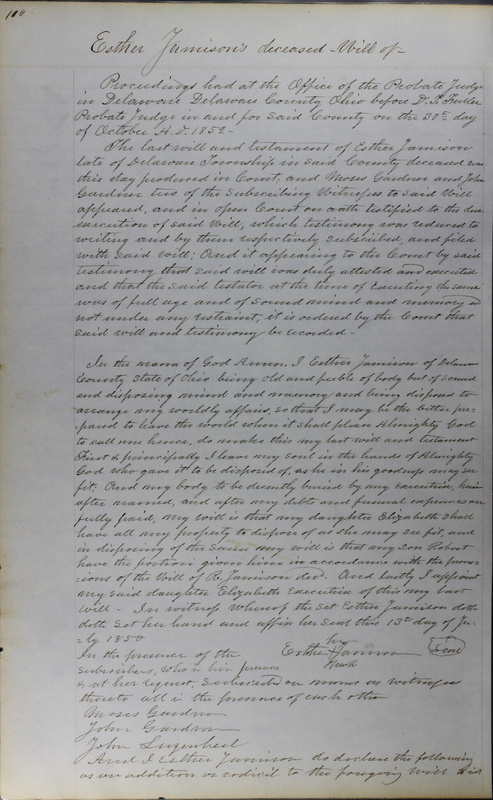 100
Esther Jamison's deceased - Will of -
Proceedings had at the Office of the Probate Judge
in Delaware Delaware County Ohio before D. T. Fuller
Probate Judge in and for said County on the 30th day
of October A.D. 1852 -
The last will and testament of Esther Jamison
late of Delaware Township in said County deceased was
this day produced in Court, and Moses Gardner and John
Gardner two of the subscribing Witness to said Will
appeared, and in open Court on oath testified to the due
execution of said Will, which testimony was reduced to
writing and by them respectively subscribed, and filed
with said will; And it appearing to the Court by said
testimony that said will was duly attested and executed
and that the said testator at the time of Executing the same
was of full age and of sound mind and memory and
not under any restraint, it is ordered by the Court that
said will and testimony be recorded -
In the name of God Amen. I Esther Jamison of Delaware
County State of Ohio being old and feeble of body but of sound
and disposing mind and memory and being disposed to
arrange my worldly affairs, so that I may be the better pre=
pared to leave the world when it shall please Almighty God
to call me hence, do make this my last will and testament
First & principally I leave my soul in the hands of Almighty
God who gave it to be disposed of, as he in his goodness may see
fit. And my body to be decently buried by my Executrix, herein
after named, and after my debts and funeral expenses are
fully paid, My will is that my daughter Elizabeth shall
have all my property to dispose of as she may see fit, and
in disposing of the same my will is that my Son Robert
have the portion given him in accordance with the provi=
sions of the Will of R. Jamison decd. And lastly I appoint
my said daughter Elizabeth Executrix of this my last
Will - In witness whereof the Set Esther Jamison doth
doth Set her hand and affix her Seal this 13th day of Ju=
=ly 1850
her
In the presence of the Esther Jamison Seal
mark
subscribers, who in her presence
& at her request, subscribed our names as witnesses
thereto all in the presence of each other
Moses Gardner
John Gardner
John
And I Esther Jamison do declare the following
as an addition or codicil to the foregoing will